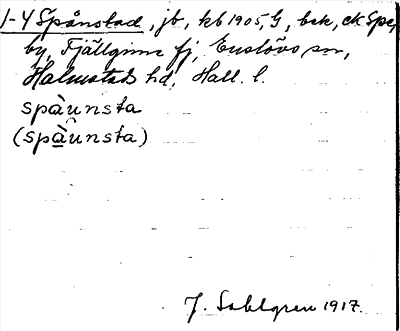 1-4 Spånstad, jb, kb 1905, G, bek, ek Spe,
by, Fjällginne fj, Enslövs sn,
Halmstads hd, Hall. l.
spàunsta
(spàunsta)
J. Sahlgren 1917.